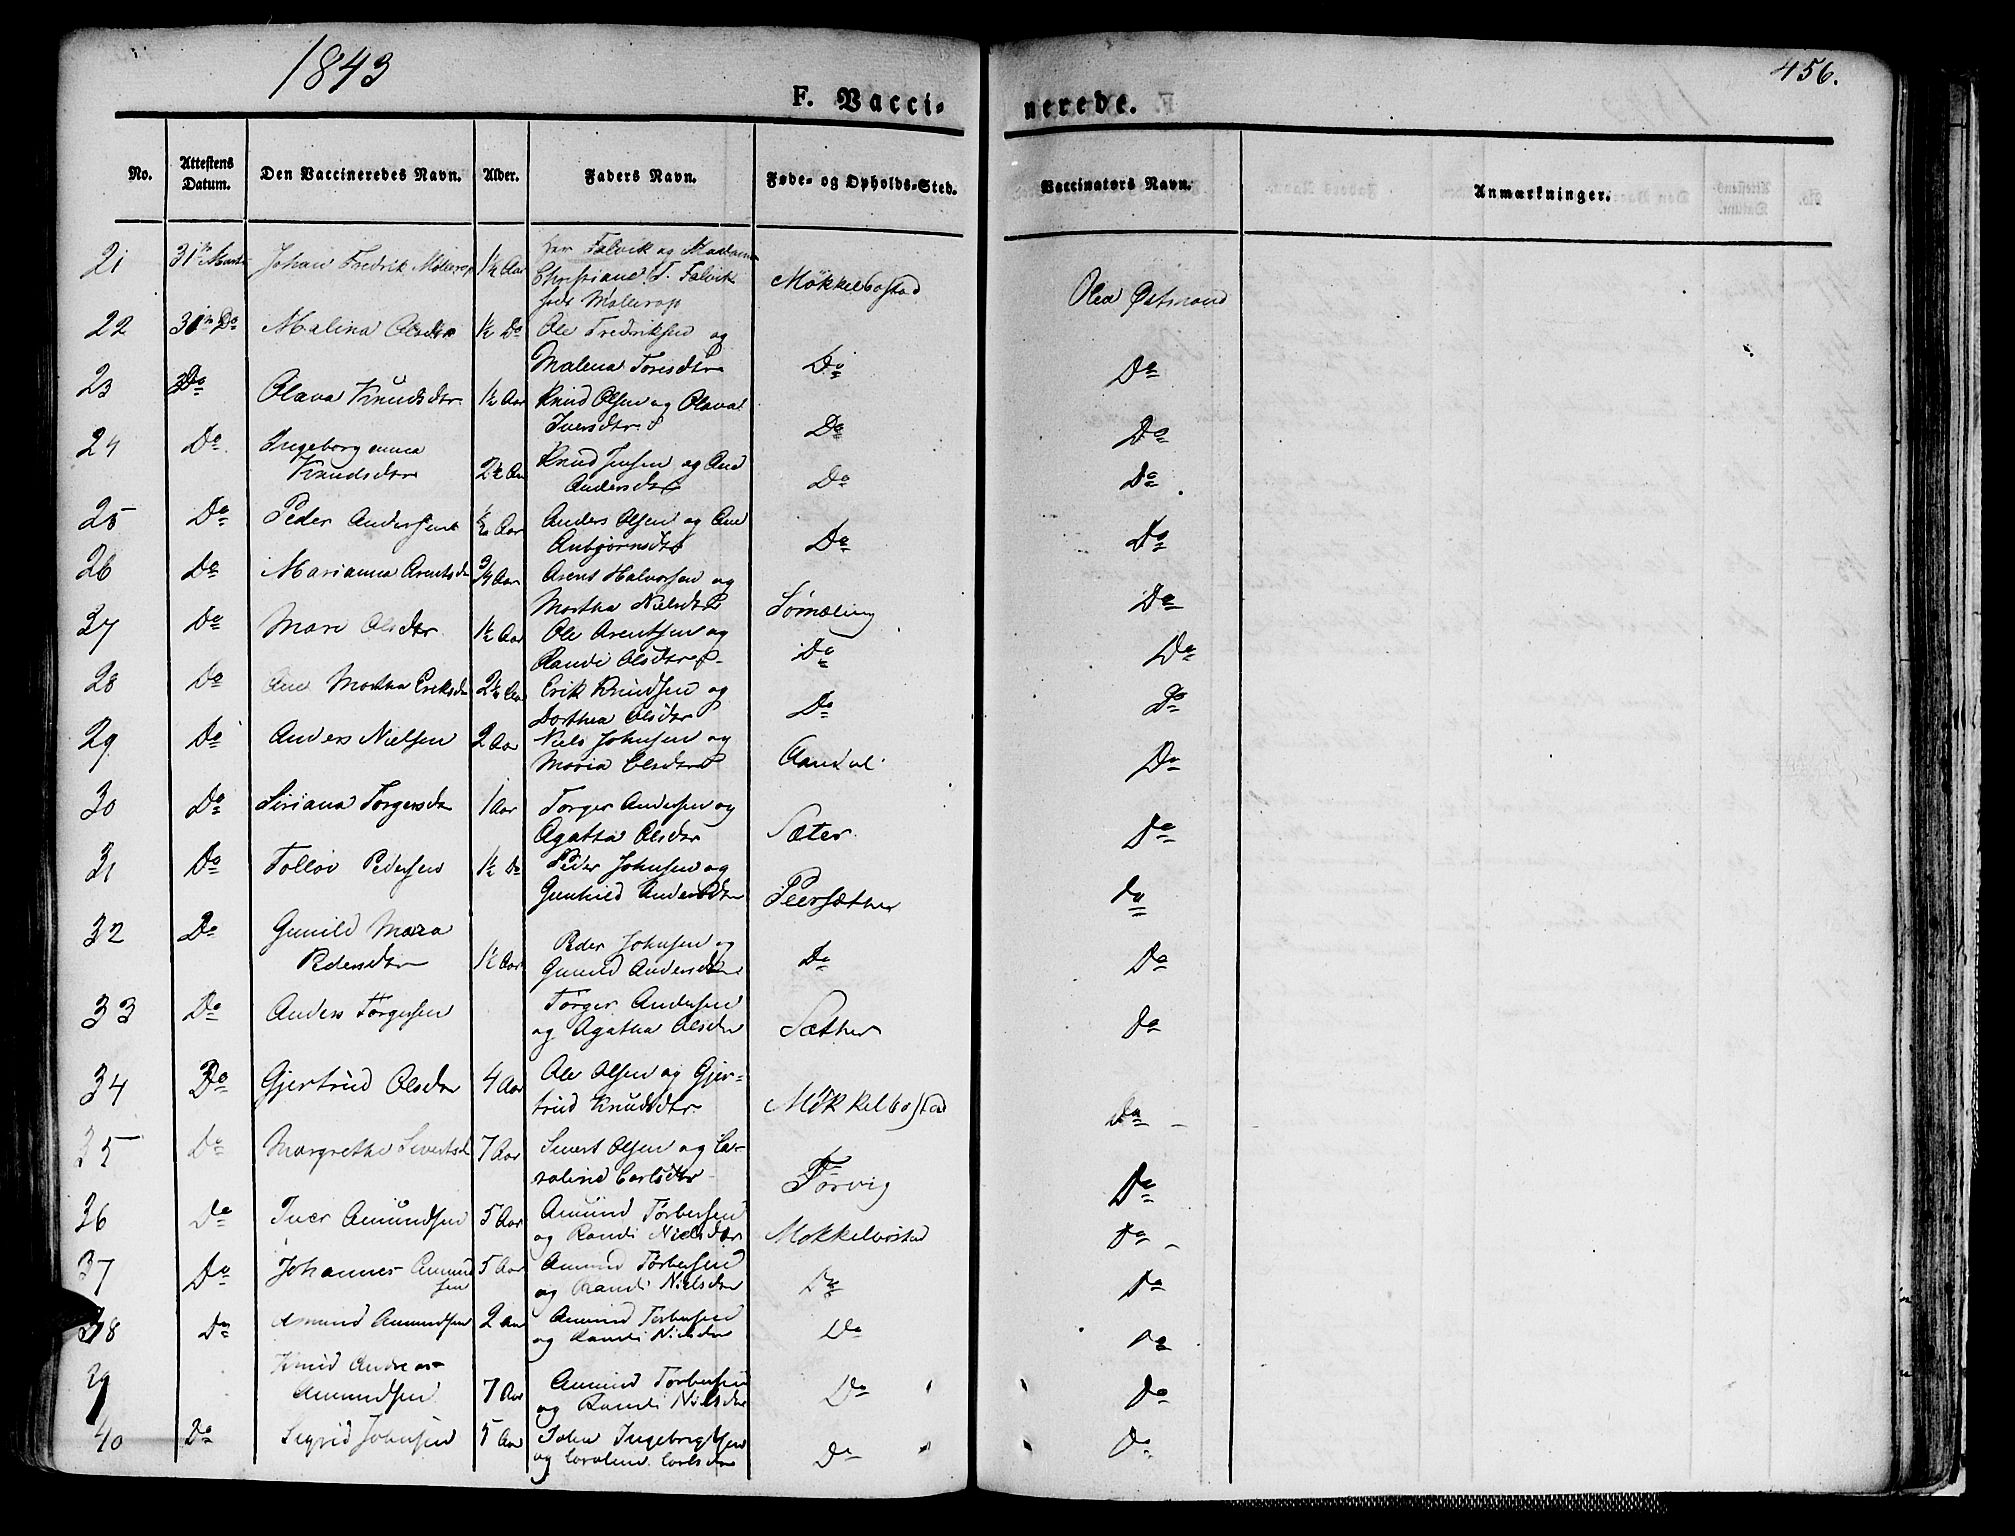 1843
456.
F. Vacci- nerede.
No. Attestens Datum. Den Vaccineredes Navn. Alder. Faders Navn. Føde- og Opholds-Sted. Vaccinators Navn. Anmærkninger.
21 31te Johan Fredrik Møllerop 1½ Aar Falvik og Madam
Christiane T. Falvik Møkkelbostad
Møllerop
22 31te Do Malina Olsdtr ½ Do Ole Fredriksen og
Malena Toresdtr Do Do
23 Do Olava Knudsdtr 1½ Aar Knud Olsen og Olava
Iversdtr Do Do
24 Do Ingeborg Anna
Knudsdtr 2½ Aar Knud Jensen og Ane
Andersdtr Do Do
25 Do Peder Andersen ½ Aar Anders Olsen og Ane
Anbjørnsdtr Do Do
26 Do Marianna Arentsdr 3/4 Aar Arent Halvorsen og
Martha Nielsdtr Sømæling Do
27 Do Mari Olsdtr 1½ Aar Ole Arentsen og
Randi Olsdtr Do Do
28 Do Ane Martha Eriksdr 2½ Aar Erik Knudsen og
Dorthea Olsdtr Do Do
29 Do Anders Nielsen 2 Aar Niels Johnsen og
Maria Olsdtr Do
30 Do Siriana Torgersdtr 1 Aar Torger Andersen og
Agatha Olsdtr Sæter Do
31 Do Tollov Pedersen 1½ Do Peder Johnsen og
Gunhild Andersdtr Peersæther do
32 Do Gunild Mara
Pedersdtr 1½ Aar Peder Johnsen og
Gunild Andersdtr Do Do
33 Do Anders Torgersen Torger Andersen
og Agatha Olsdtr Sæther Do
34 Do Gjertrud Olsdtr 4 Aar Ole Olsen og Gjer-
trud Knudsdtr Møkkelbostad Do
35 Do Margrethe Sivertsd 7 Aar Sivert Olsen og Ca-
roline Carlsdtr Torvig Do
36 Do Iver Amundsen 5 Aar Amund Torbersen
og Randi Nielsdtr Mokkelbostad Do
37 Do Johannes Amund
sen 5 Aar Amund Torbersen
og Randi Nielsdtr Do Do
38 Do Amund Amundsen 2 Aar Amund Torbersen
og Randi Nielsdtr Do Do
39 Knud Andreas
Amundsen 7 Aar Amund Torbersen
og Randi Nielsdtr Do Do
40 Do Sigrid Johnsen 5 Aar John Ingebrigtsen
og Caroline Carlsdtr Do Do